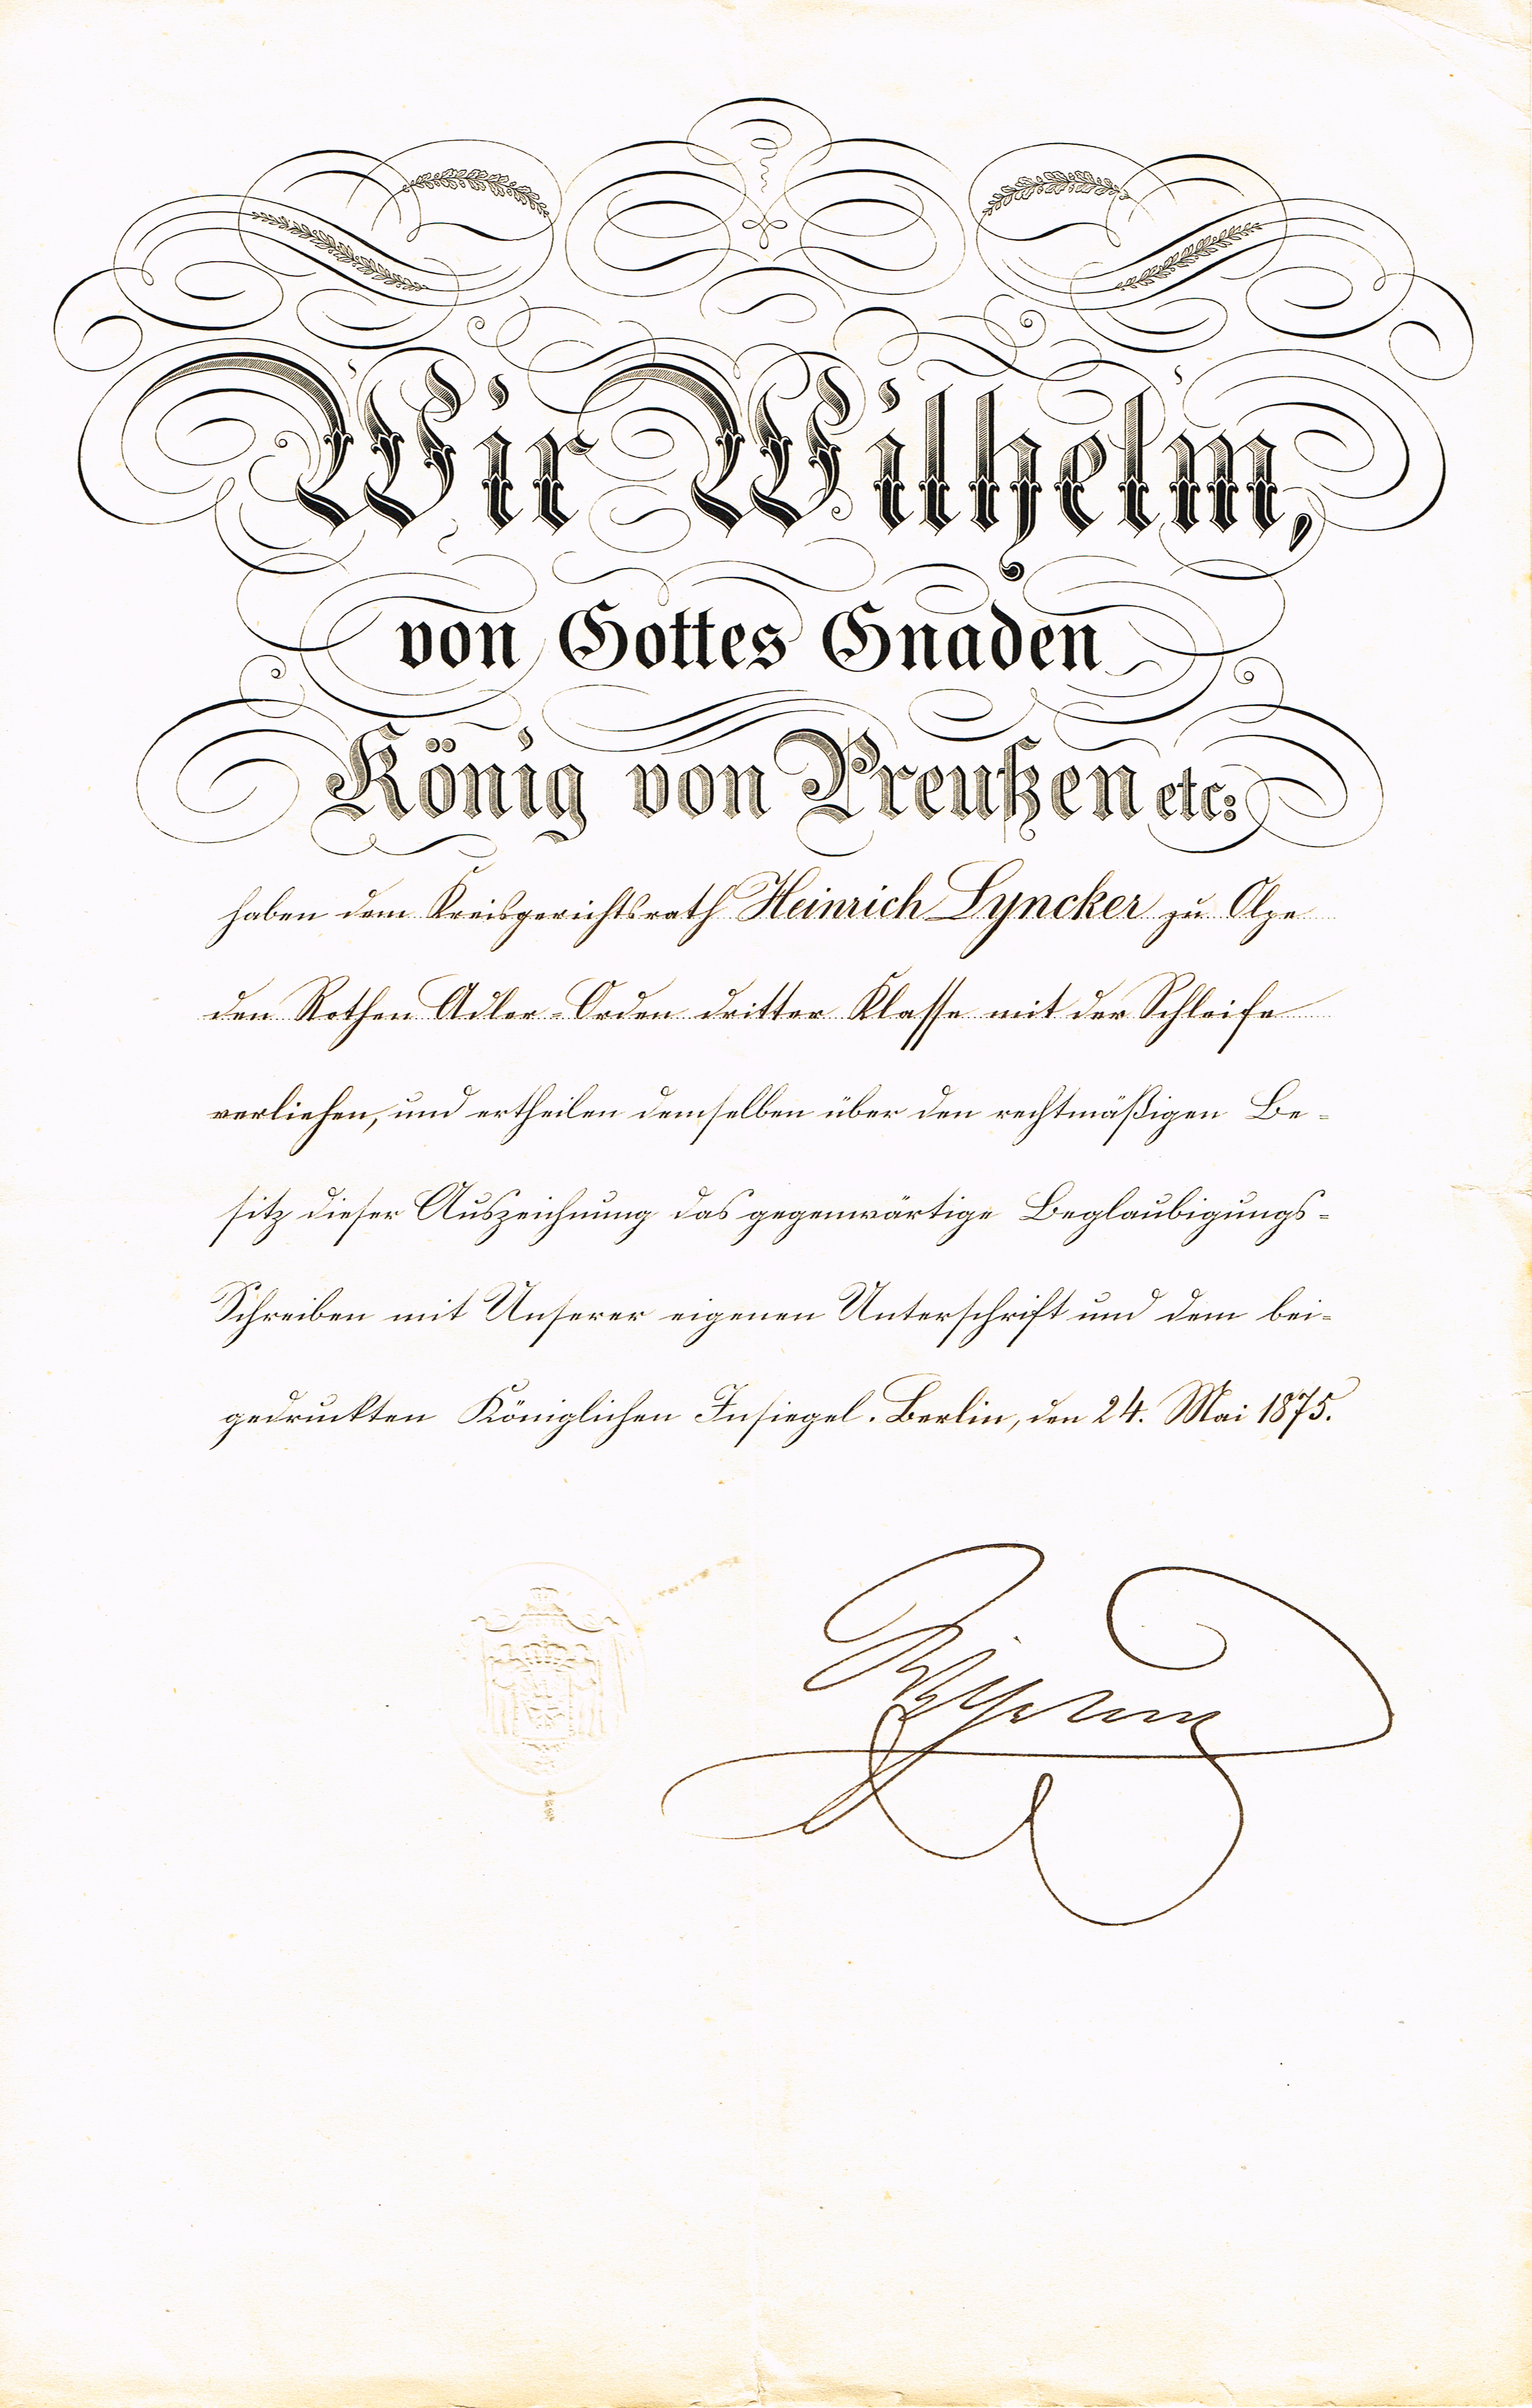 Wir Wilhelm,
von Gottes Gnaden
König von Preußen etc:
haben dem Kreisgerichtsrath Heinrich Lyncker zu Olpe
den Rothen Adler-Orden dritter Klasse mit der Schleife
verliehen, und ertheilen demselben über den rechtmäßigen Be-
sitz dieser Auszeichnung das gegenwärtige Beglaubigungs-
Schreiben mit Unserer eigenen Unterschrift und dem bei-
gedruckten Königlichen Insiegel. Berlin, den 24. Mai 1875.
Wilhelm